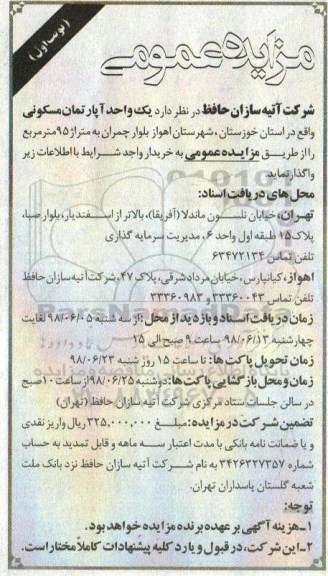 (نوبت اول)
مزایده عمومی
شرکت آتیه سازان حافظ در نظر دارد یک واحد آپارتمان مسکونی
واقع در استان خوزستان، شهرستان اهواز بلوار چمران به متراژ ۹۵ مترمربع
را از طریق مزایده عمومی به خریدار واجد شرایط با اطلاعات زیر
واگذار نماید.
محل های دریافت اسناد:
تهران، خیابان نلسون ماندلا (آفریقا)، بالاتر از اسفندیار، بلوار صبا،
پلاک ۱۵ طبقه اول واحد ۶، مدیریت سرمایه گذاری
تلفن تماس ۶۳۴۷۲۱۳۴
اهواز، کیانپارس، خیابان مرداد شرقی، پلاک ۴۷، شرکت آتیه سازان حافظ
تلفن تماس ۳۳۳۶۰۰۴۳ و ۳۳۳۶۰۹۸۳
زمان دریافت اسناد و بازدید از محل: از سه شنبه ۹۸/۰۶/۰۵ لغایت
چهارشنبه ۹۸/۰۶/۱۳ ساعت ۹ صبح الی ۱۵
زمان تحویل پاکت ها: تا ساعت ۱۵ روز شنبه ۹۸/۰۶/۲۳
زمان و محل بازگشایی پاکت ها: دوشنبه ۹۸/۰۶/۲۵ از ساعت ۱۰ صبح
در سالن جلسات ستاد مرکزی شرکت آتیه سازان حافظ (تهران)
تضمین شرکت در مزایده: مبلغ ۳۲۵,۰۰۰,۰۰۰ ریال واریز نقدی
و یا ضمانت نامه بانکی با مدت اعتبار سه ماهه و قابل تمدید به حساب
شماره ۳۴۲۶۳۲۷۳۵۷ به نام شرکت آتیه سازان حافظ نزد بانک ملت
شعبه گلستان پاسداران تهران.
توجه:
۱- هزینه آگهی بر عهده برنده مزایده خواهد بود.
۲- این شرکت، در قبول و یا رد کلیه پیشنهادات کاملاً مختار است.